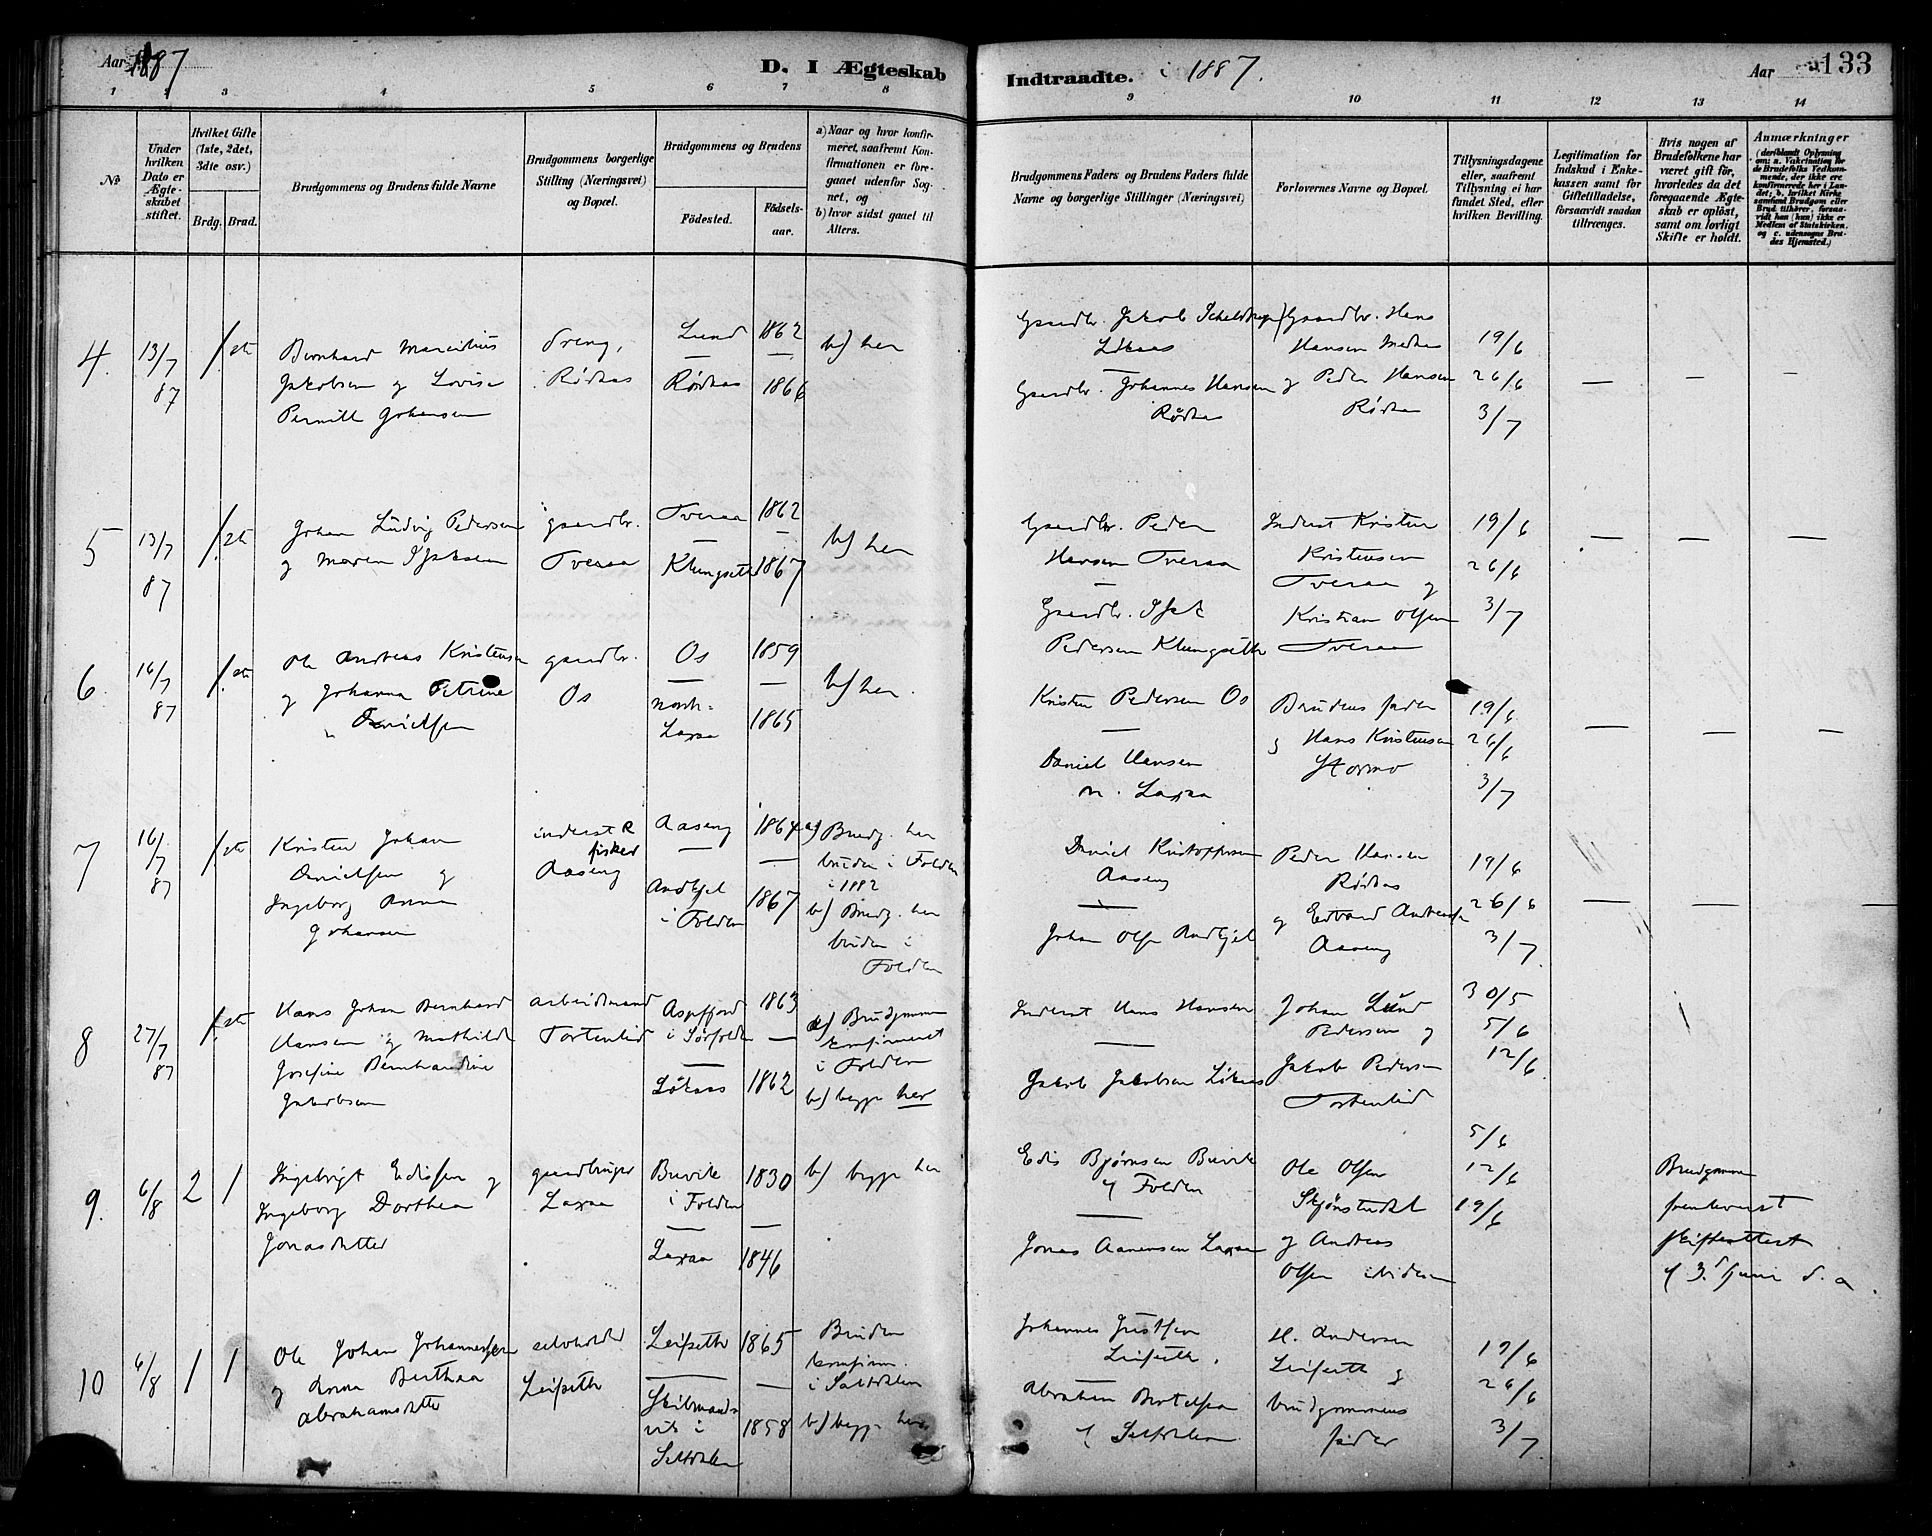 Aar 1887
D. I Ægteskab
Indtraadte. i 1887.
Aar
133
1 2 3 4 5 6 7 8 9 10 11 12 13 14
No
Under hvilken Dato er Ægteskabet stiftet.
Hvilket Gifte (1ste, 2det, 3die osv.)
Brdg. Brud.
Brudgommens og Brudens fulde Navne
Brudgommens borgerlige Stilling (Næringsvei) og Bopæl.
Brudgommens og Brudens
Födested.
Födsels-aar.
a) Naar og hvor konfirmeret, saafremt Konfirmationen er foregaaet udenfor Sognet, og
b) hvor sidst gaaet til Alters.
Brudgommens Faders og Brudens Faders fulde Navne og borgerlige Stillinger (Næringsvei)
Forlovernes Navne og Bopæl.
Tillysningsdagene eller, saafremt Tillysning ei har fundet Sted, efter hvilken Bevilling.
Legitimation for Indskud i Enkekassen samt for Giftetilladelse, forsaavidt saadan tiltrænges.
Hvis nogen af Brudefolkene har været gift før, hvorledes da det foregaaende Ægteskab er oplöst, samt om lovligt Skifte er holdt.
Anmærkninger
(deriblandt Oplysning om: a. Vakcination for de Brudefolks Vedkommende, der ikke ere konfirmerede her i Landet; b. hvilket Kirkesamfund Brudgom eller Brud tilhörer, forsaavidt han (hun) ikke er Medlem af Statskirken. og c. udensogns Brudes Hjemsted.)
4. 13/7 87
1 ste
Bernhard Marcilius
Jakobsen og Lovise
Pernill Johansen
Dreng,
Rödaas
Lund 1862
Rødaas 1866
b) her
Gaardbr. Jakob Scheldrup
Lökaas
Gaardbr. Johannes Hansen
Rödaas
Gaardbr. Hans
Hansen
og Peder Hansen
19/6
26/6
3/7
— — —
5 13/7 87
1 ste
Johan Ludvig Pedersen
og Maren Isaksen
gaardbr.
Tveraa
Tveraa 1862
Klungseth 1867
b) her
Gaardbr. Peder
Hansen Tveraa
Gaardbr. Isak
Pedersen Klungseth
Inderst Kristen
Kristensen
Tveraa og
Kristian Olsen
Tveraa
19/6
26/6
3/7
— — —
6. 16/7 87
1 ste
Ole Andreas Kristensen
og Johanna Petrine
Danielsen
gaardbr.
Os
Os 1859
nord-
Laxaa 1865
b) her.
Kristen Pedersen Os
Daniel Hansen
n. Laxaa
Brudens fader
og Hans Kristensen
Stormo
19/6
26/6
3/7
— — —
7 16/7 87
1 ste
Kristen Johan
Danielsen og
Ingeborg Anna
Johansen
inderst &
fisker
Aaseng
Aaseng 1864
Andkjel
i Folden 1867
a) Brudg. her
bruden i Folden
i 1882
b) Brudg. her
bruden i
Folden
Daniel Kristoffersen
Aaseng
Johan Olsen Andkjel
Peder Hansen
Rödaas
og Edvard Andreassen
Aaseng
19/6
26/6
3/7
— — —
8 27/7 87
1 ste
Hans Johan Bernhard
Hansen og Mathilde
Josefine Bernhardine
Jakobsen
arbeidsmand
Tortenlid
Aspfjord
i Sørfolden 1863
Lökaas 1862
a) Brudgommen
konfirmeret
i Folden
b) begge her
Inderst Hans Hansen
Jakob Jakobsen Lökaas
Johan Lund
Pedersen og
Jakob Pedersen
Tortenlid
30/5
5/6
12/6
9. 6/8 2 1
Ingebrigt Edissen og
Ingeborg Dorthea
Jonasdatter
gaardbruger
Laxaa
Buvik
i Folden 1830
Laxaa 1846
b) begge her
Edis Bjørnsen Buvik
i Folden
Jonas Aanensen Laxaa
Ole Olsen
Skjönstudal
og Andreas
Olsen
5/6
12/6
19/6
Brudgommen
skifteattest
af 3. Juni d. a
10 6/8 1 1
Ole Johan Johannessen
og Anna Berthea
Abrahamsdatter
selveholder
Leifseth
Leifseth 1865
vik i
Saltdalen 1858
Bruden
konfirm.
i Saltdalen
b) begge her
Johannes Justsen
Leifseth.
Abraham Bertelsen
i Saltdalen
H. Andersen
Leifseth og
brudgommens
fader
19/6
26/6
3/7